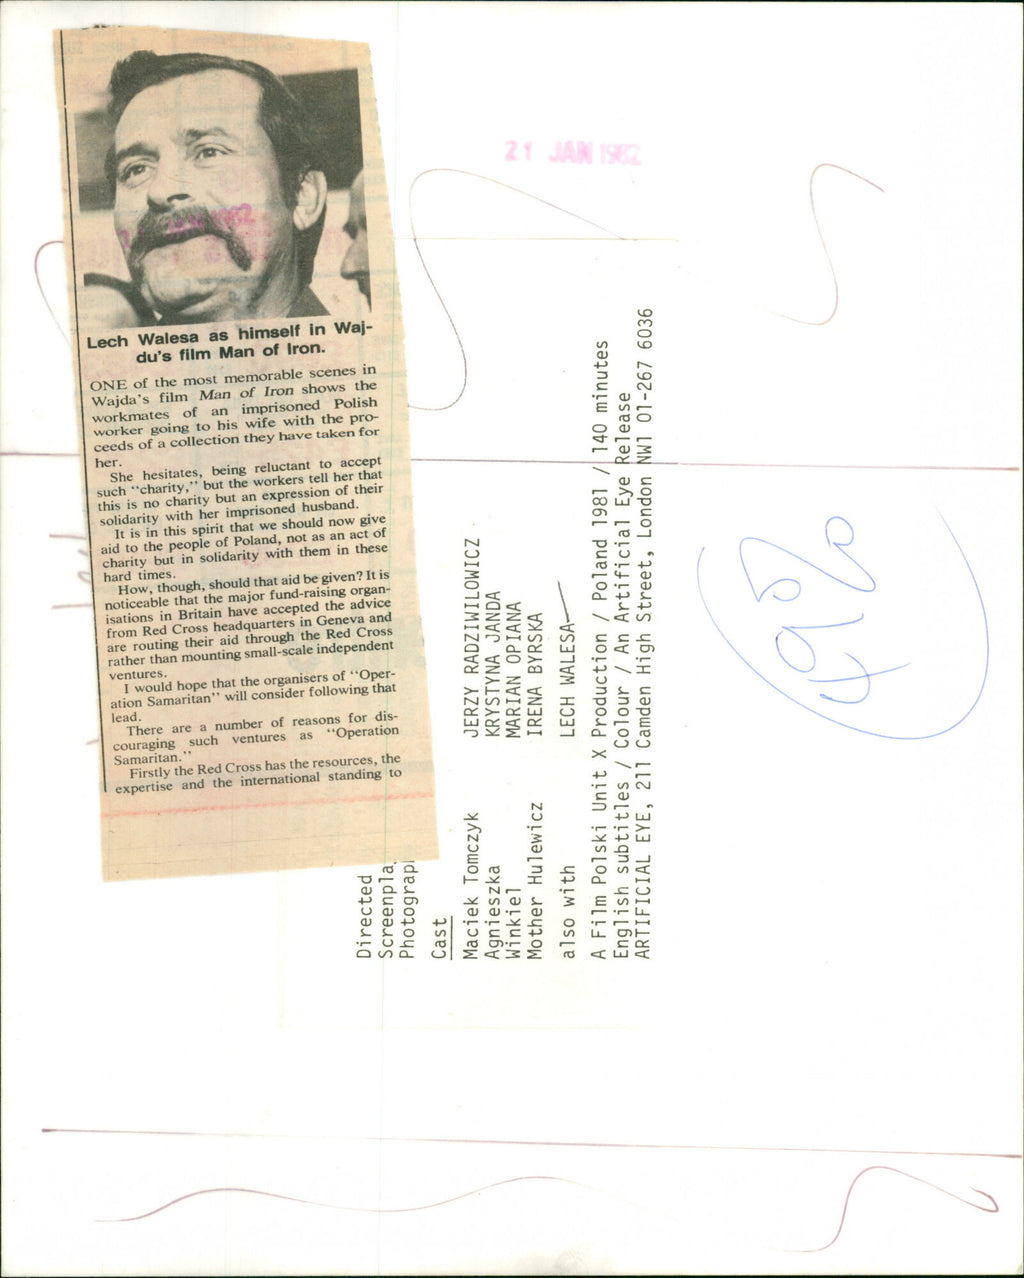 21 JAN 1982
Lech Walesa as himself in Waj-
du's film Man of Iron.
ONE of the most memorable scenes in
Wajda's film Man of Iron shows the
workmates of an imprisoned Polish
worker going to his wife with the pro-
ceeds of a collection they have taken for
her.
She hesitates, being reluctant to accept
such "charity," but the workers tell her that
this is no charity but an expression of their
solidarity with her imprisoned husband.
It is in this spirit that we should now give
aid to the people of Poland, not as an act of
charity but in solidarity with them in these
hard times.
How, though, should that aid be given? It is
noticeable that the major fund-raising organ-
isations in Britain have accepted the advice
from Red Cross headquarters in Geneva and
are routing their aid through the Red Cross
rather than mounting small-scale independent
ventures.
I would hope that the organisers of "Oper-
ation Samaritan" will consider following that
lead.
There are a number of reasons for dis-
couraging such ventures as "Operation
Samaritan."
Firstly the Red Cross has the resources, the
expertise and the international standing to
Directed
Screenpla
Photograp
Cast
Maciek Tomczyk JERZY RADZIWILOWICZ
Agnieszka KRYSTYNA JANDA
Winkiel MARIAN OPIANA
Mother Hulewicz IRENA BYRSKA
also with LECH WALESA
A Film Polski Unit X Production / Poland 1981 / 140 minutes
English subtitles / Colour / An Artificial Eye Release
ARTIFICIAL EYE, 211 Camden High Street, London NW1 01-267 6036